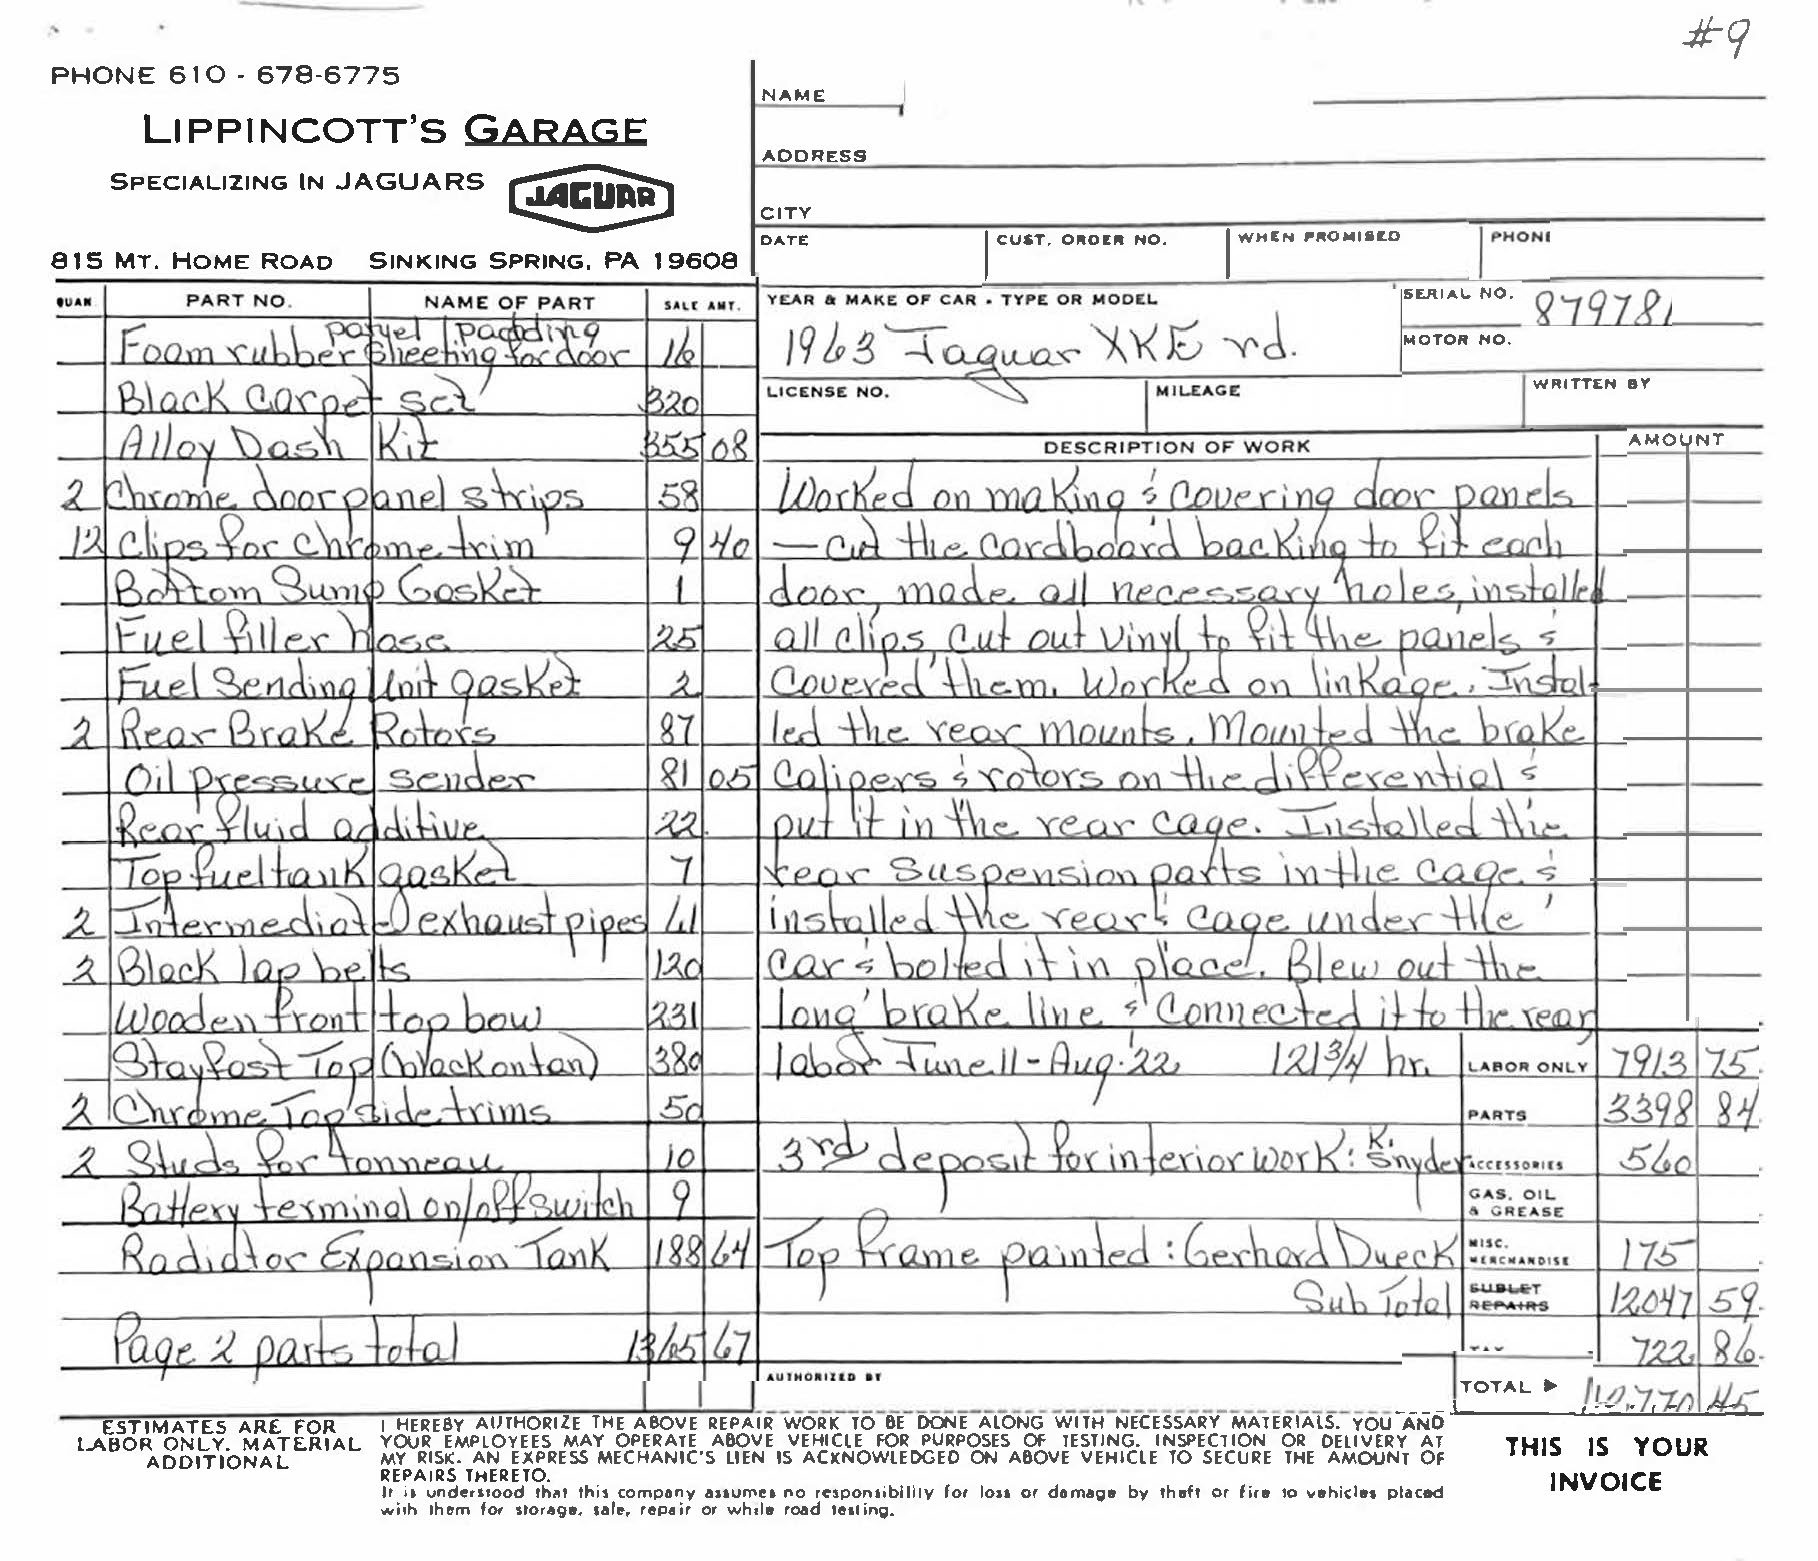 #9
PHONE 610 - 678-6775
LIPPINCOTT'S GARAGE
SPECIALIZING IN JAGUARS
JAGUAR
815 MT. HOME ROAD SINKING SPRING, PA 19608
NAME
ADDRESS
CITY
DATE CUST. ORDER NO. WHEN PROMISED PHONE
YEAR & MAKE OF CAR - TYPE OR MODEL SERIAL NO. 879781
1963 Jaguar XKE rd. MOTOR NO.
LICENSE NO. MILEAGE WRITTEN BY
QUAN PART NO. NAME OF PART SALE AMT.
panel padding
Foam rubber sheeting for door 16
Black carpet set 320
Alloy Dash Kit 355 08
2 Chrome door panel strips 58
12 Clips for chrome trim 9 40
Bottom Sump Gasket 1
Fuel filler hose 25
Fuel Sending Unit gasket 2
2 Rear Brake Rotors 87
Oil pressure sender 81 05
Rear fluid additive 22
Top fuel tank gasket 7
2 Intermediate exhaust pipes 61
2 Black lap belts 120
Wooden front top bow 231
Stayfast Top (black on tan) 380
2 Chrome Top side trims 50
2 Studs for tonneau 10
Battery terminal on/off switch 9
Radiator Expansion Tank 188 64
Page 2 parts total 1365 67
DESCRIPTION OF WORK AMOUNT
Worked on making & covering door panels
— cut the cardboard backing to fit each
door, made all necessary holes, installed
all clips, cut out vinyl to fit the panels &
covered them. Worked on linkage. Instal-
led the rear mounts. Mounted the brake
calipers & rotors on the differential &
put it in the rear cage. Installed the
rear suspension parts in the cage &
installed the rear cage under the
car & bolted it in place. Blew out the
long brake line & connected it to the rear
labor June 11 - Aug. 22 121 3/4 hr. LABOR ONLY 7913 75
PARTS 3398 84
3rd deposit for interior work: K. Snyder ACCESSORIES 560
GAS, OIL
& GREASE
Top frame painted: Gerhard Dueck MISC. MERCHANDISE 175
Sub Total SUBLET REPAIRS 12047 59
722 86
AUTHORIZED BY
TOTAL ▶ 12,770 45
ESTIMATES ARE FOR
LABOR ONLY. MATERIAL
ADDITIONAL
I HEREBY AUTHORIZE THE ABOVE REPAIR WORK TO BE DONE ALONG WITH NECESSARY MATERIALS. YOU AND
YOUR EMPLOYEES MAY OPERATE ABOVE VEHICLE FOR PURPOSES OF TESTING, INSPECTION OR DELIVERY AT
MY RISK. AN EXPRESS MECHANIC'S LIEN IS ACKNOWLEDGED ON ABOVE VEHICLE TO SECURE THE AMOUNT OF
REPAIRS THERETO.
It is understood that this company assumes no responsibility for loss or damage by theft or fire to vehicles placed
with them for storage, sale, repair or while road testing.
THIS IS YOUR
INVOICE